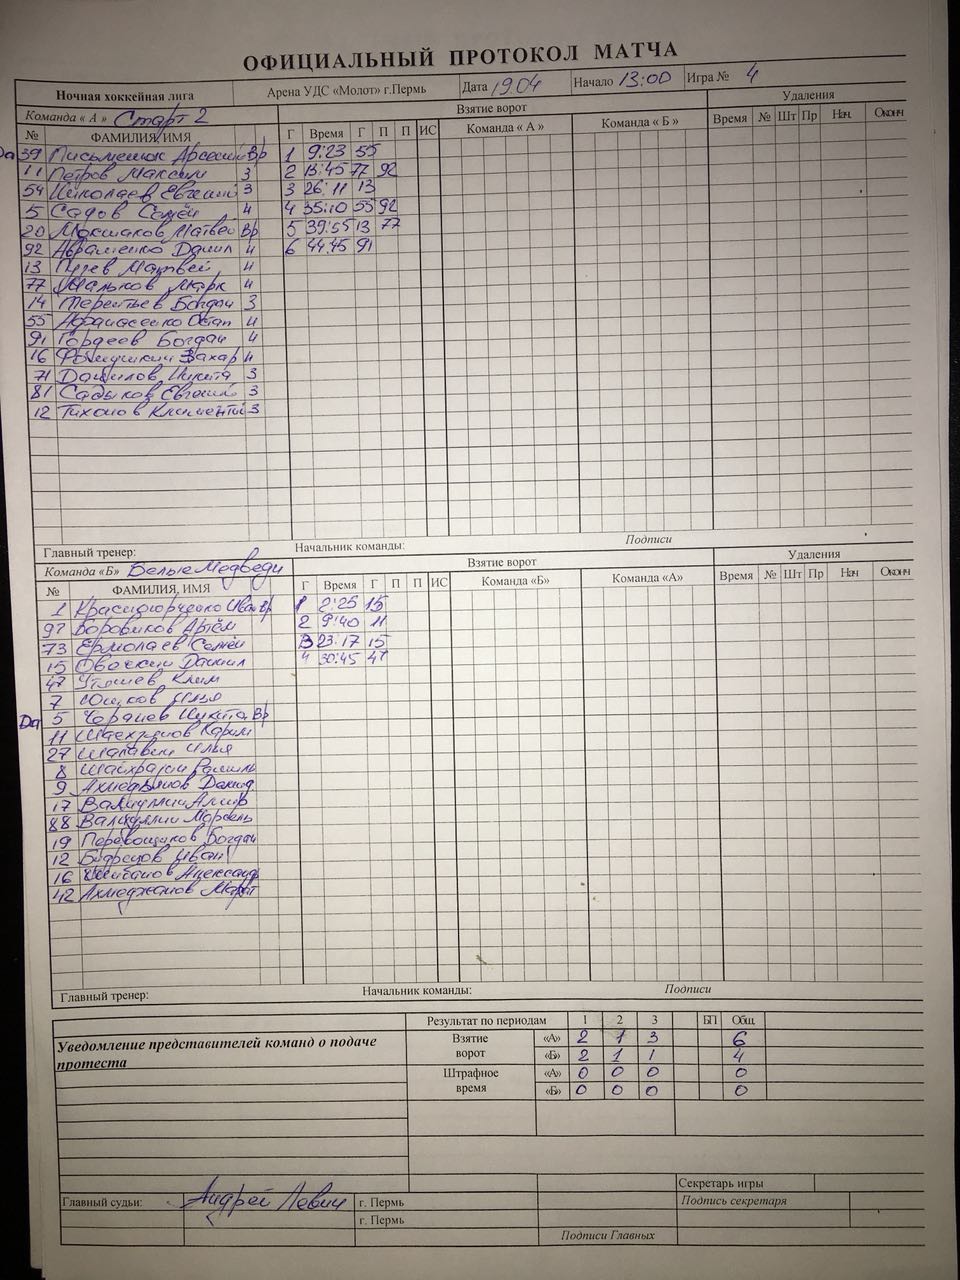 ОФИЦИАЛЬНЫЙ ПРОТОКОЛ МАТЧА
Ночная хоккейная лига Арена УДС «Молот» г.Пермь Дата 19.04 Начало 13:00 Игра № 4
Команда « А » Старт 2 Взятие ворот Удаления
№ ФАМИЛИЯ, ИМЯ Г Время Г П П ИС Команда « А » Команда « Б » Время № Шт Пр Нач. Оконч
Да 39 Письменюк Арсений Вр 1 9:23 55
11 Петров Максим З 2 13:45 77 92
54 Николаев Евгений З 3 26:11 13
5 Садов Семён Н 4 35:10 55 92
20 Мокшаков Матвей Вр 5 39:55 13 77
92 Авраменко Данил Н 6 44:45 91
13 Матвей Н
77 Мальков Марк Н
14 Терентьев Богдан З
55 Афанасенко Остап Н
91 Гордеев Богдан Н
16 Захар Н
71 Данилов Никита З
81 Садыков Евгений З
12 Тихонов Климентий З
Главный тренер: Начальник команды: Подписи
Команда «Б» Белые Медведи Взятие ворот Удаления
№ ФАМИЛИЯ, ИМЯ Г Время Г П П ИС Команда «Б» Команда «А» Время № Шт Пр Нач Оконч
1 Иван Вр 1 2:25 15
97 Боровиков Артём 2 9:40 11
73 Ермолаев Семён 3 23:17 15
15 Овочкин Даниил 4 30:45 47
47 Утяшев Клим
7 Юшков Илья
Да 5 Никита Вр
11 Карим
27 Шалавин Илья
8
9 Ахмедьянов Давид
17 Валидуллин Амир
88 Марсель
19 Перевощиков Богдан
12 Иван
16 Шибанов Александр
42 Ахмеджанов Марат
Главный тренер: Начальник команды: Подписи
Результат по периодам 1 2 3 БП Общ
Уведомление представителей команд о подаче протеста
Взятие ворот «А» 2 1 3 6
«Б» 2 1 1 4
Штрафное время «А» 0 0 0 0
«Б» 0 0 0 0
Секретарь игры
Главный судьи: Андрей Левин г. Пермь Подпись секретаря
г. Пермь
Подписи Главных